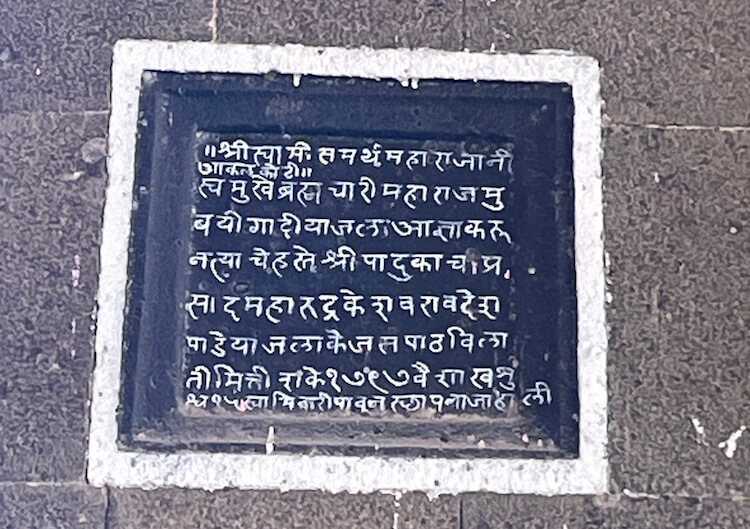 ॥श्री स्वामी समर्थ महाराजानी
आकलकोटी॥
स्वमुखे ब्रह्मचारी महाराज मु
बयी गादी याजला आज्ञा करू
न त्याचे हस्ते श्री पादुका चा प्र
साद महारुद्र केशवराव देश
पाडे याजला केज स पाठविला
ती मिती शके १७९७ वैशाख शु
ध १५ स्थापना जाहाली